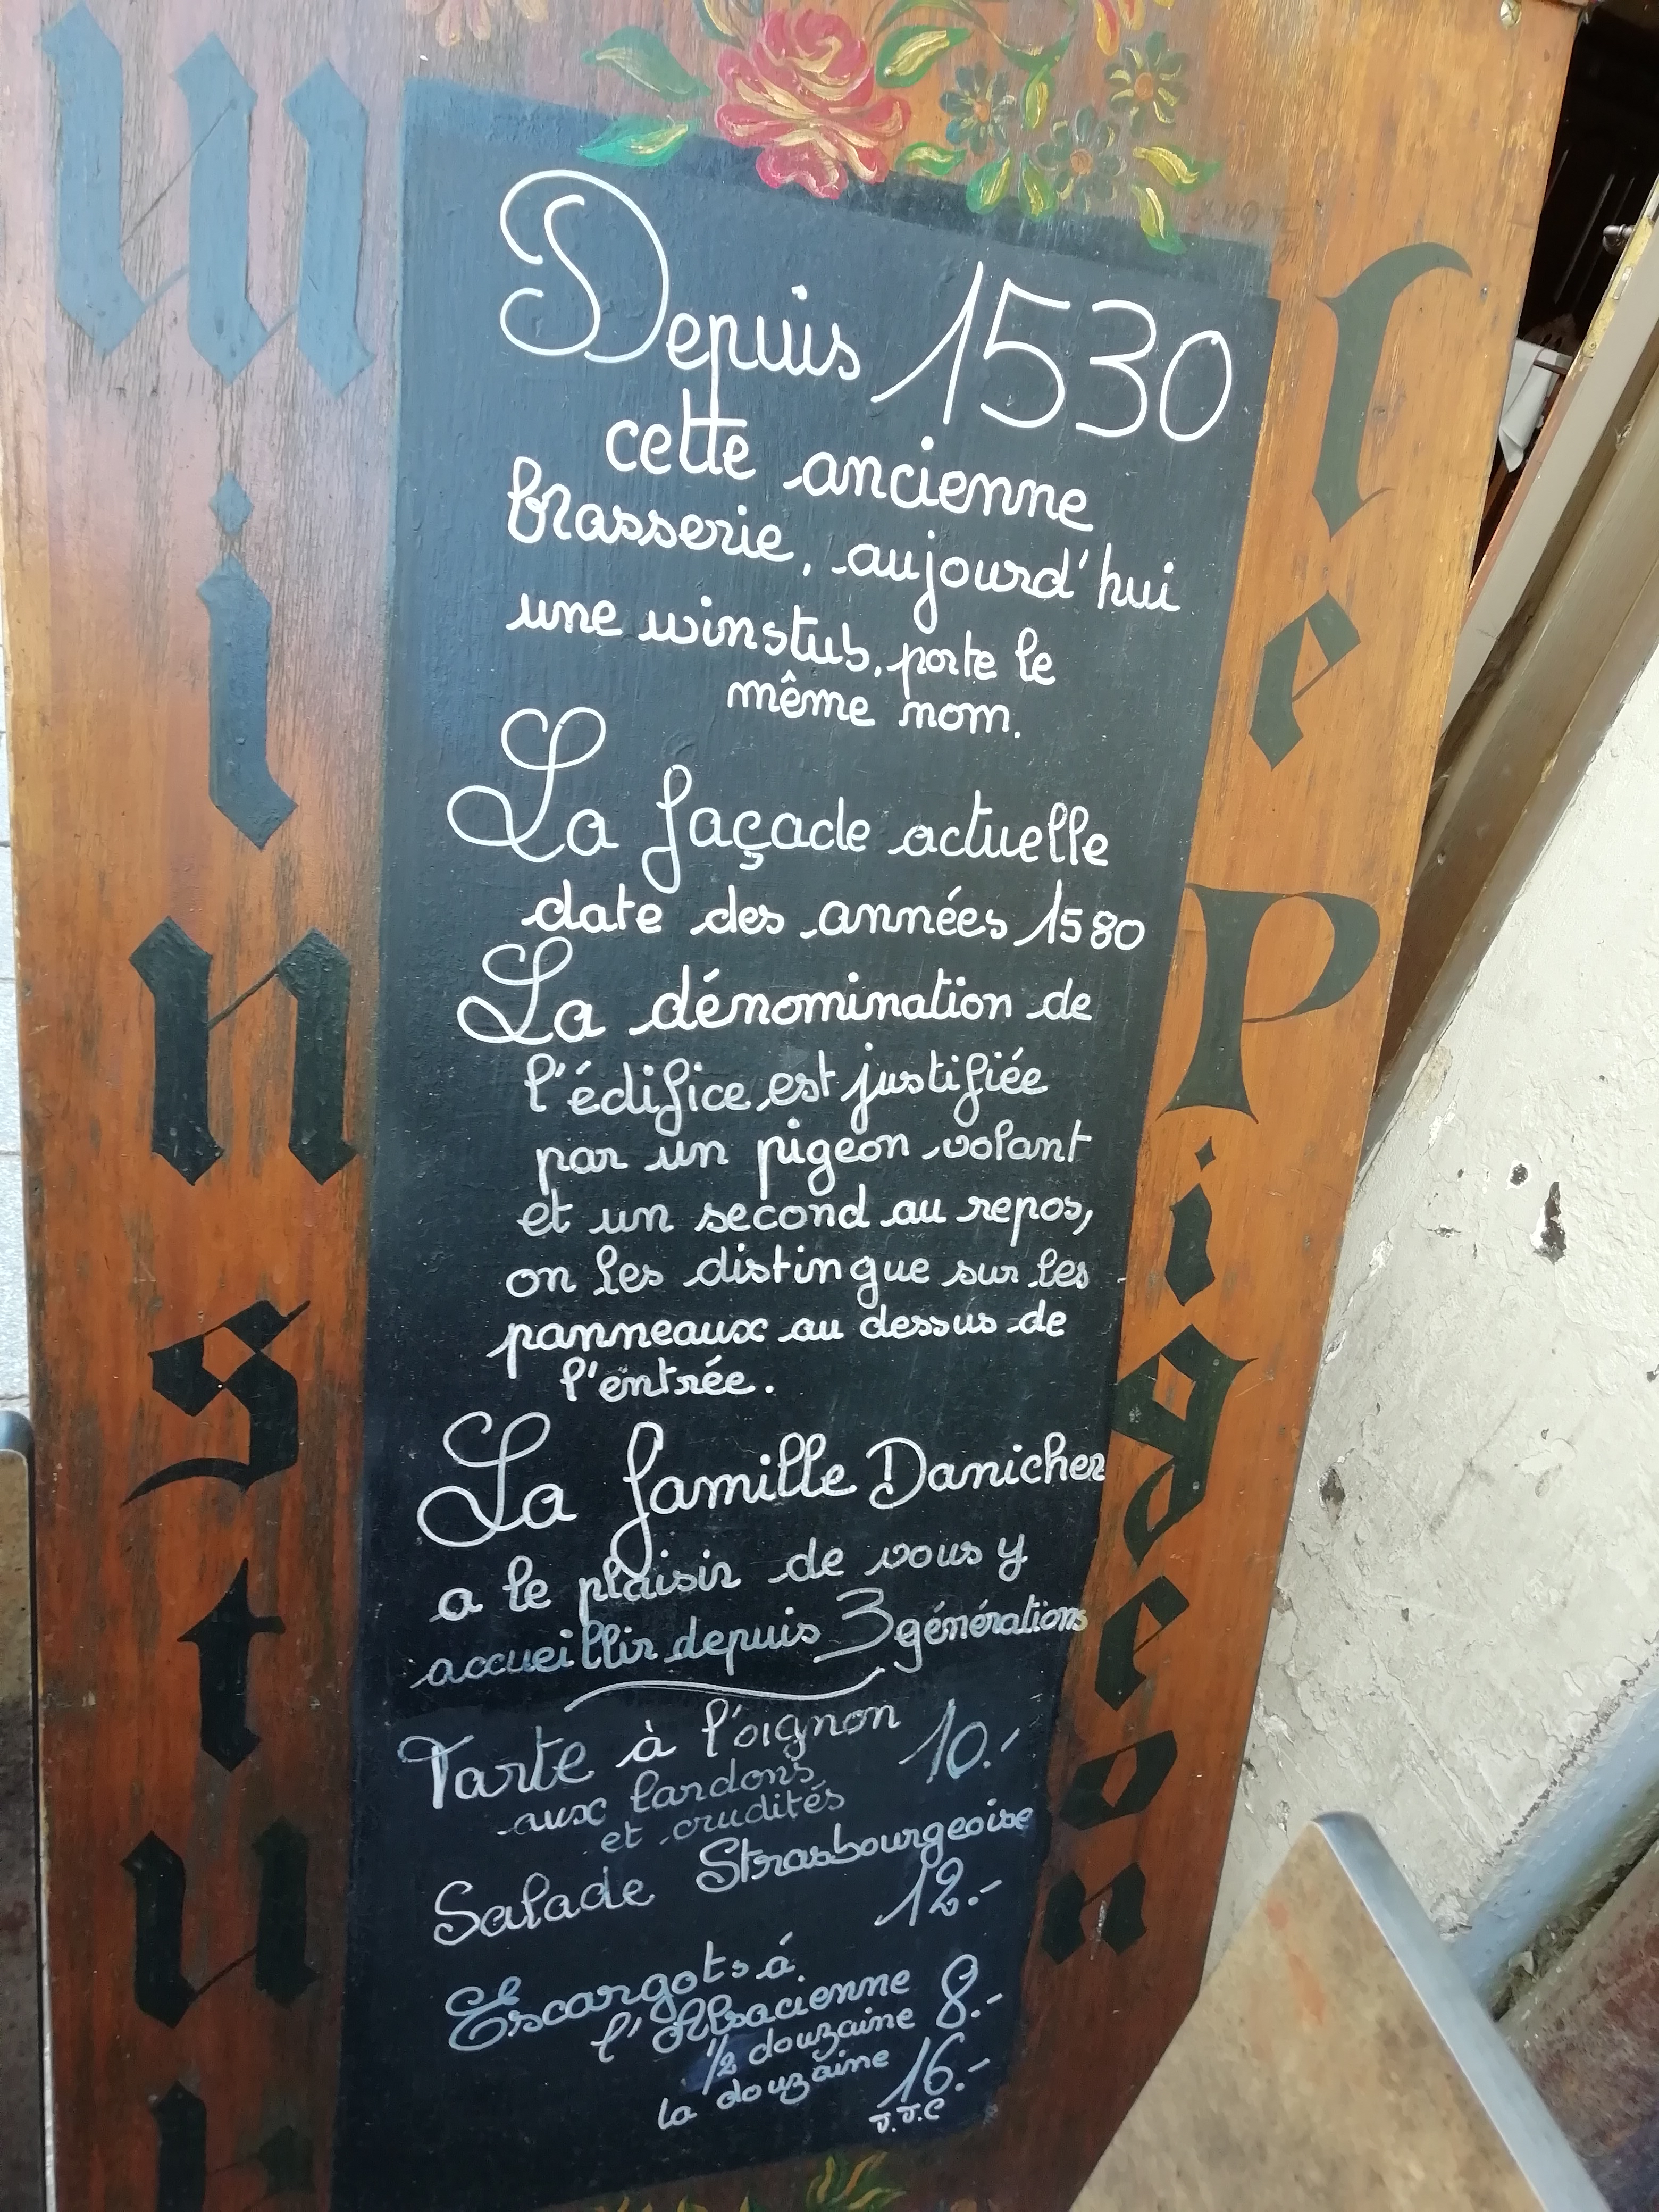 winstub
le Pigeon
Depuis 1530
cette ancienne
brasserie, aujourd'hui
une winstub, porte le
même nom.
La façade actuelle
date des années 1580
La dénomination de
l'édifice est justifiée
par un pigeon volant
et un second au repos,
on les distingue sur les
panneaux au dessus de
l'entrée.
La famille Danicher
a le plaisir de vous y
accueillir depuis 3 générations
Tarte à l'oignon 10.-
aux lardons
et crudités
Salade Strasbourgeoise
12.-
Escargots à
l'Alsacienne
1/2 douzaine 8.-
la douzaine 16.-
T.T.C